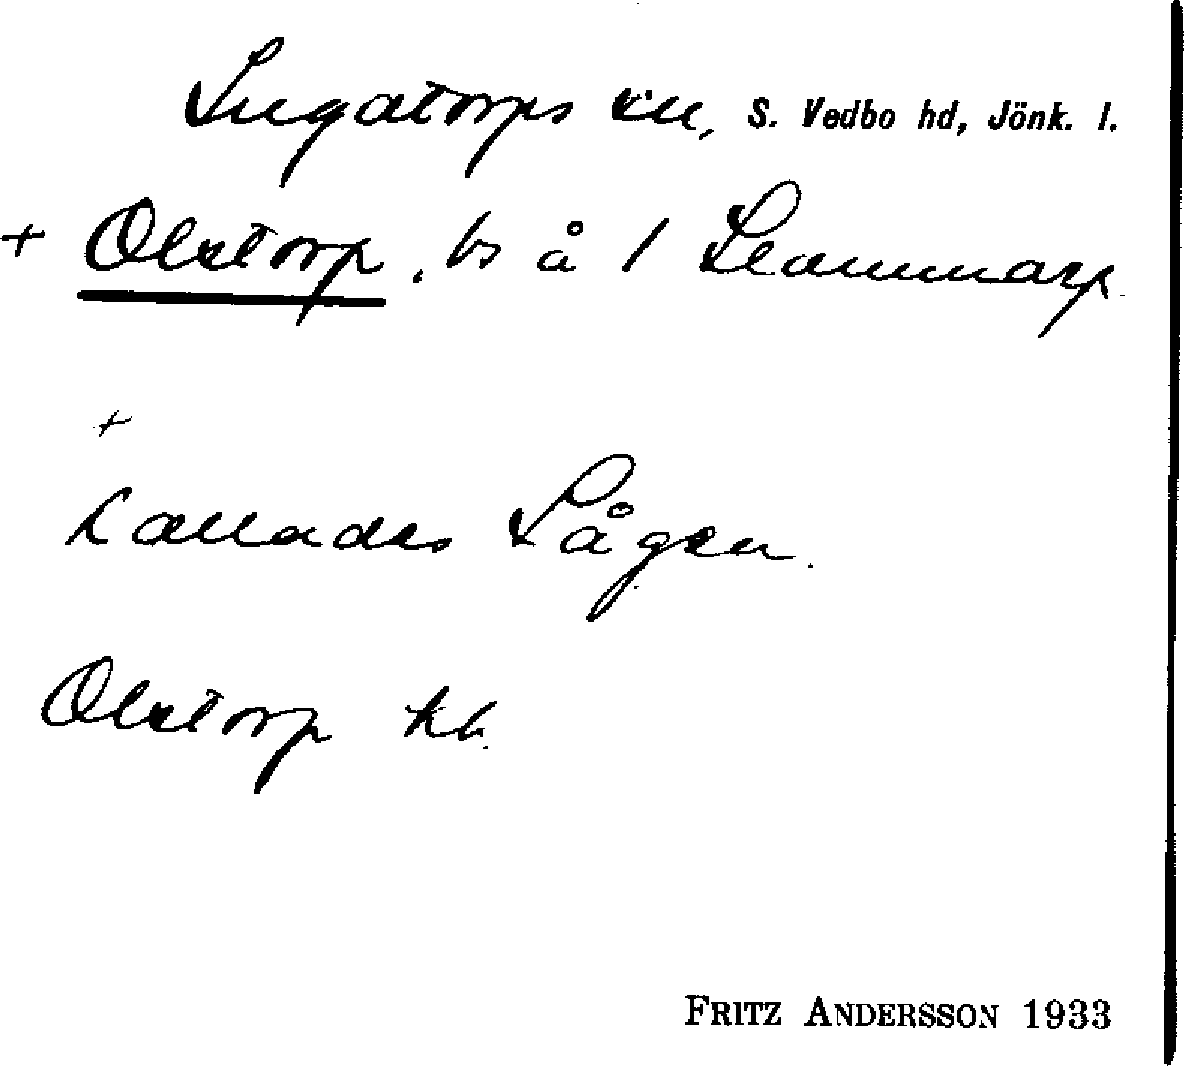 Ingatorps sn, S. Vedbo hd, Jönk. l.
+ Olstorp, bs å 1 Stammarp.
+
Kallades Sågen.
Olstorp kb.
FRITZ ANDERSSON 1933